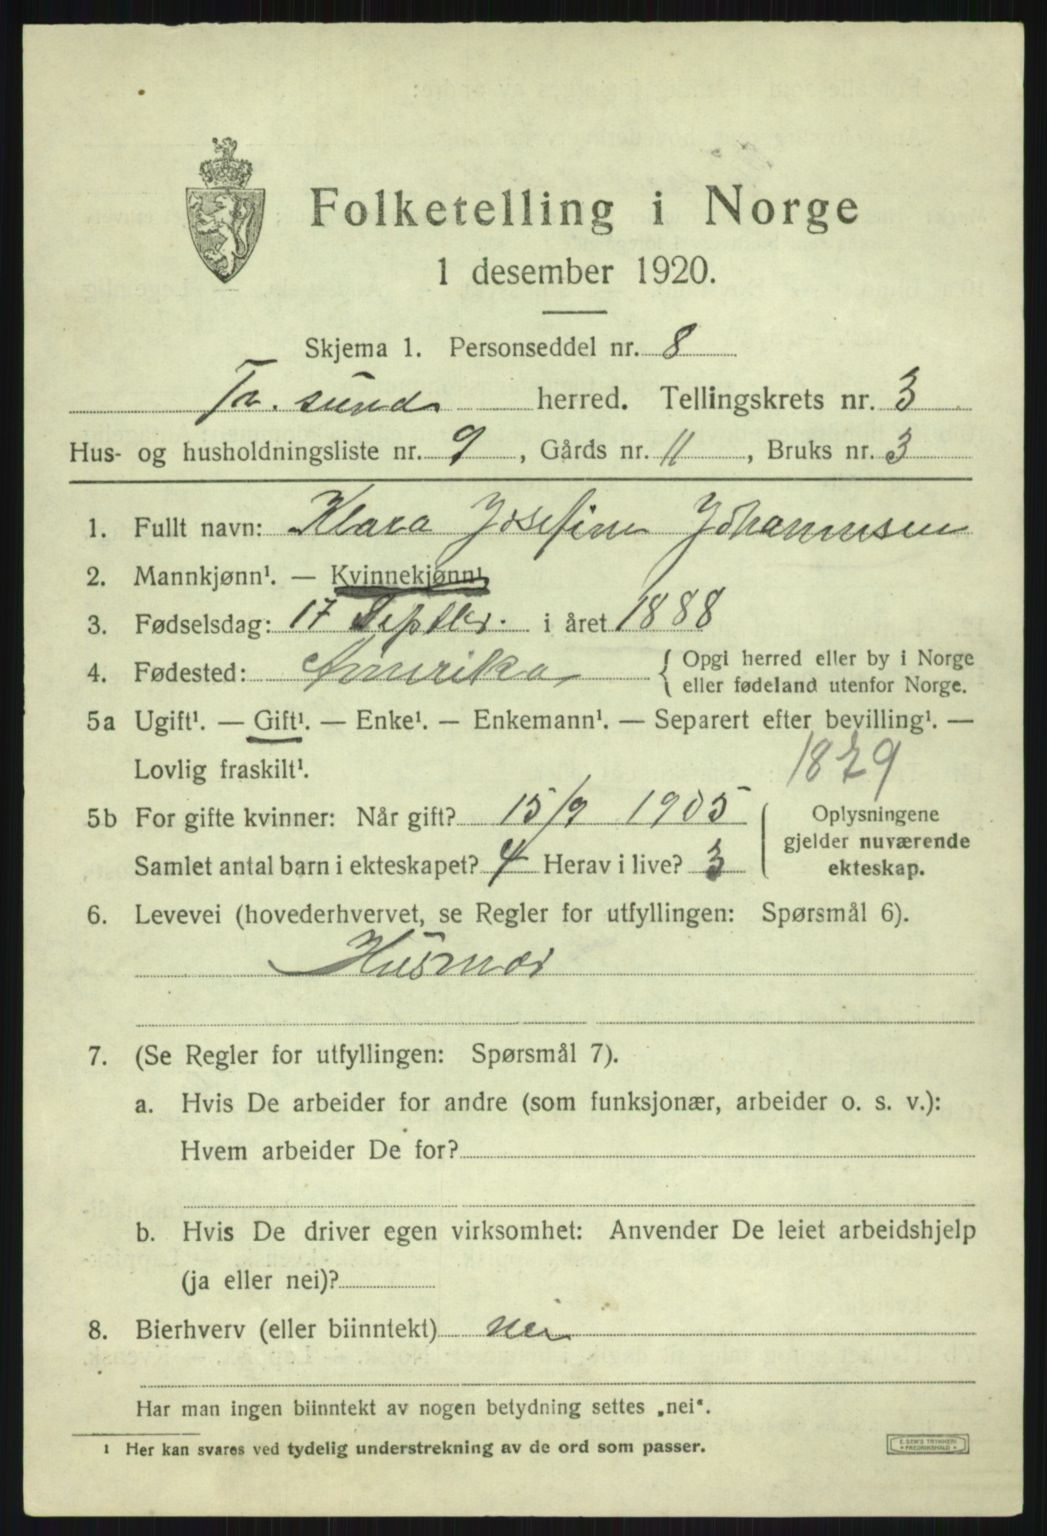 Folketelling i Norge
1 desember 1920.
Skjema 1. Personseddel nr. 8
Tr. sund herred. Tellingskrets nr. 3
Hus- og husholdningsliste nr. 9, Gårds nr. 11, Bruks nr. 3
1. Fullt navn: Klara Josefine Johannesen
2. Mannkjønn¹. — Kvinnekjønn¹
3. Fødselsdag: 17 Septbr. i året 1888
4. Fødested: Amerika { Opgi herred eller by i Norge
eller fødeland utenfor Norge.
5a Ugift¹. — Gift¹. — Enke¹. — Enkemann¹. — Separert efter bevilling¹. —
Lovlig fraskilt¹. 1879
5b For gifte kvinner: Når gift? 15/9 1905 Oplysningene
gjelder nuværende
Samlet antal barn i ekteskapet? 4 Herav i live? 3 ekteskap.
6. Levevei (hovederhvervet, se Regler for utfyllingen: Spørsmål 6).
Husmor
7. (Se Regler for utfyllingen: Spørsmål 7).
a. Hvis De arbeider for andre (som funksjonær, arbeider o. s. v.):
Hvem arbeider De for?
b. Hvis De driver egen virksomhet: Anvender De leiet arbeidshjelp
(ja eller nei)?
8. Bierhverv (eller biinntekt) nei
Har man ingen biinntekt av nogen betydning settes „nei".
¹ Her kan svares ved tydelig understrekning av de ord som passer.
E. SEM'S TRYKKERI
FREDRIKSHALD